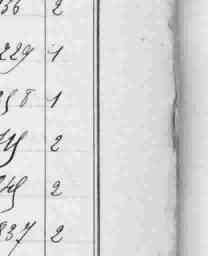 36 2
229 1
258 1
2
2
837 2